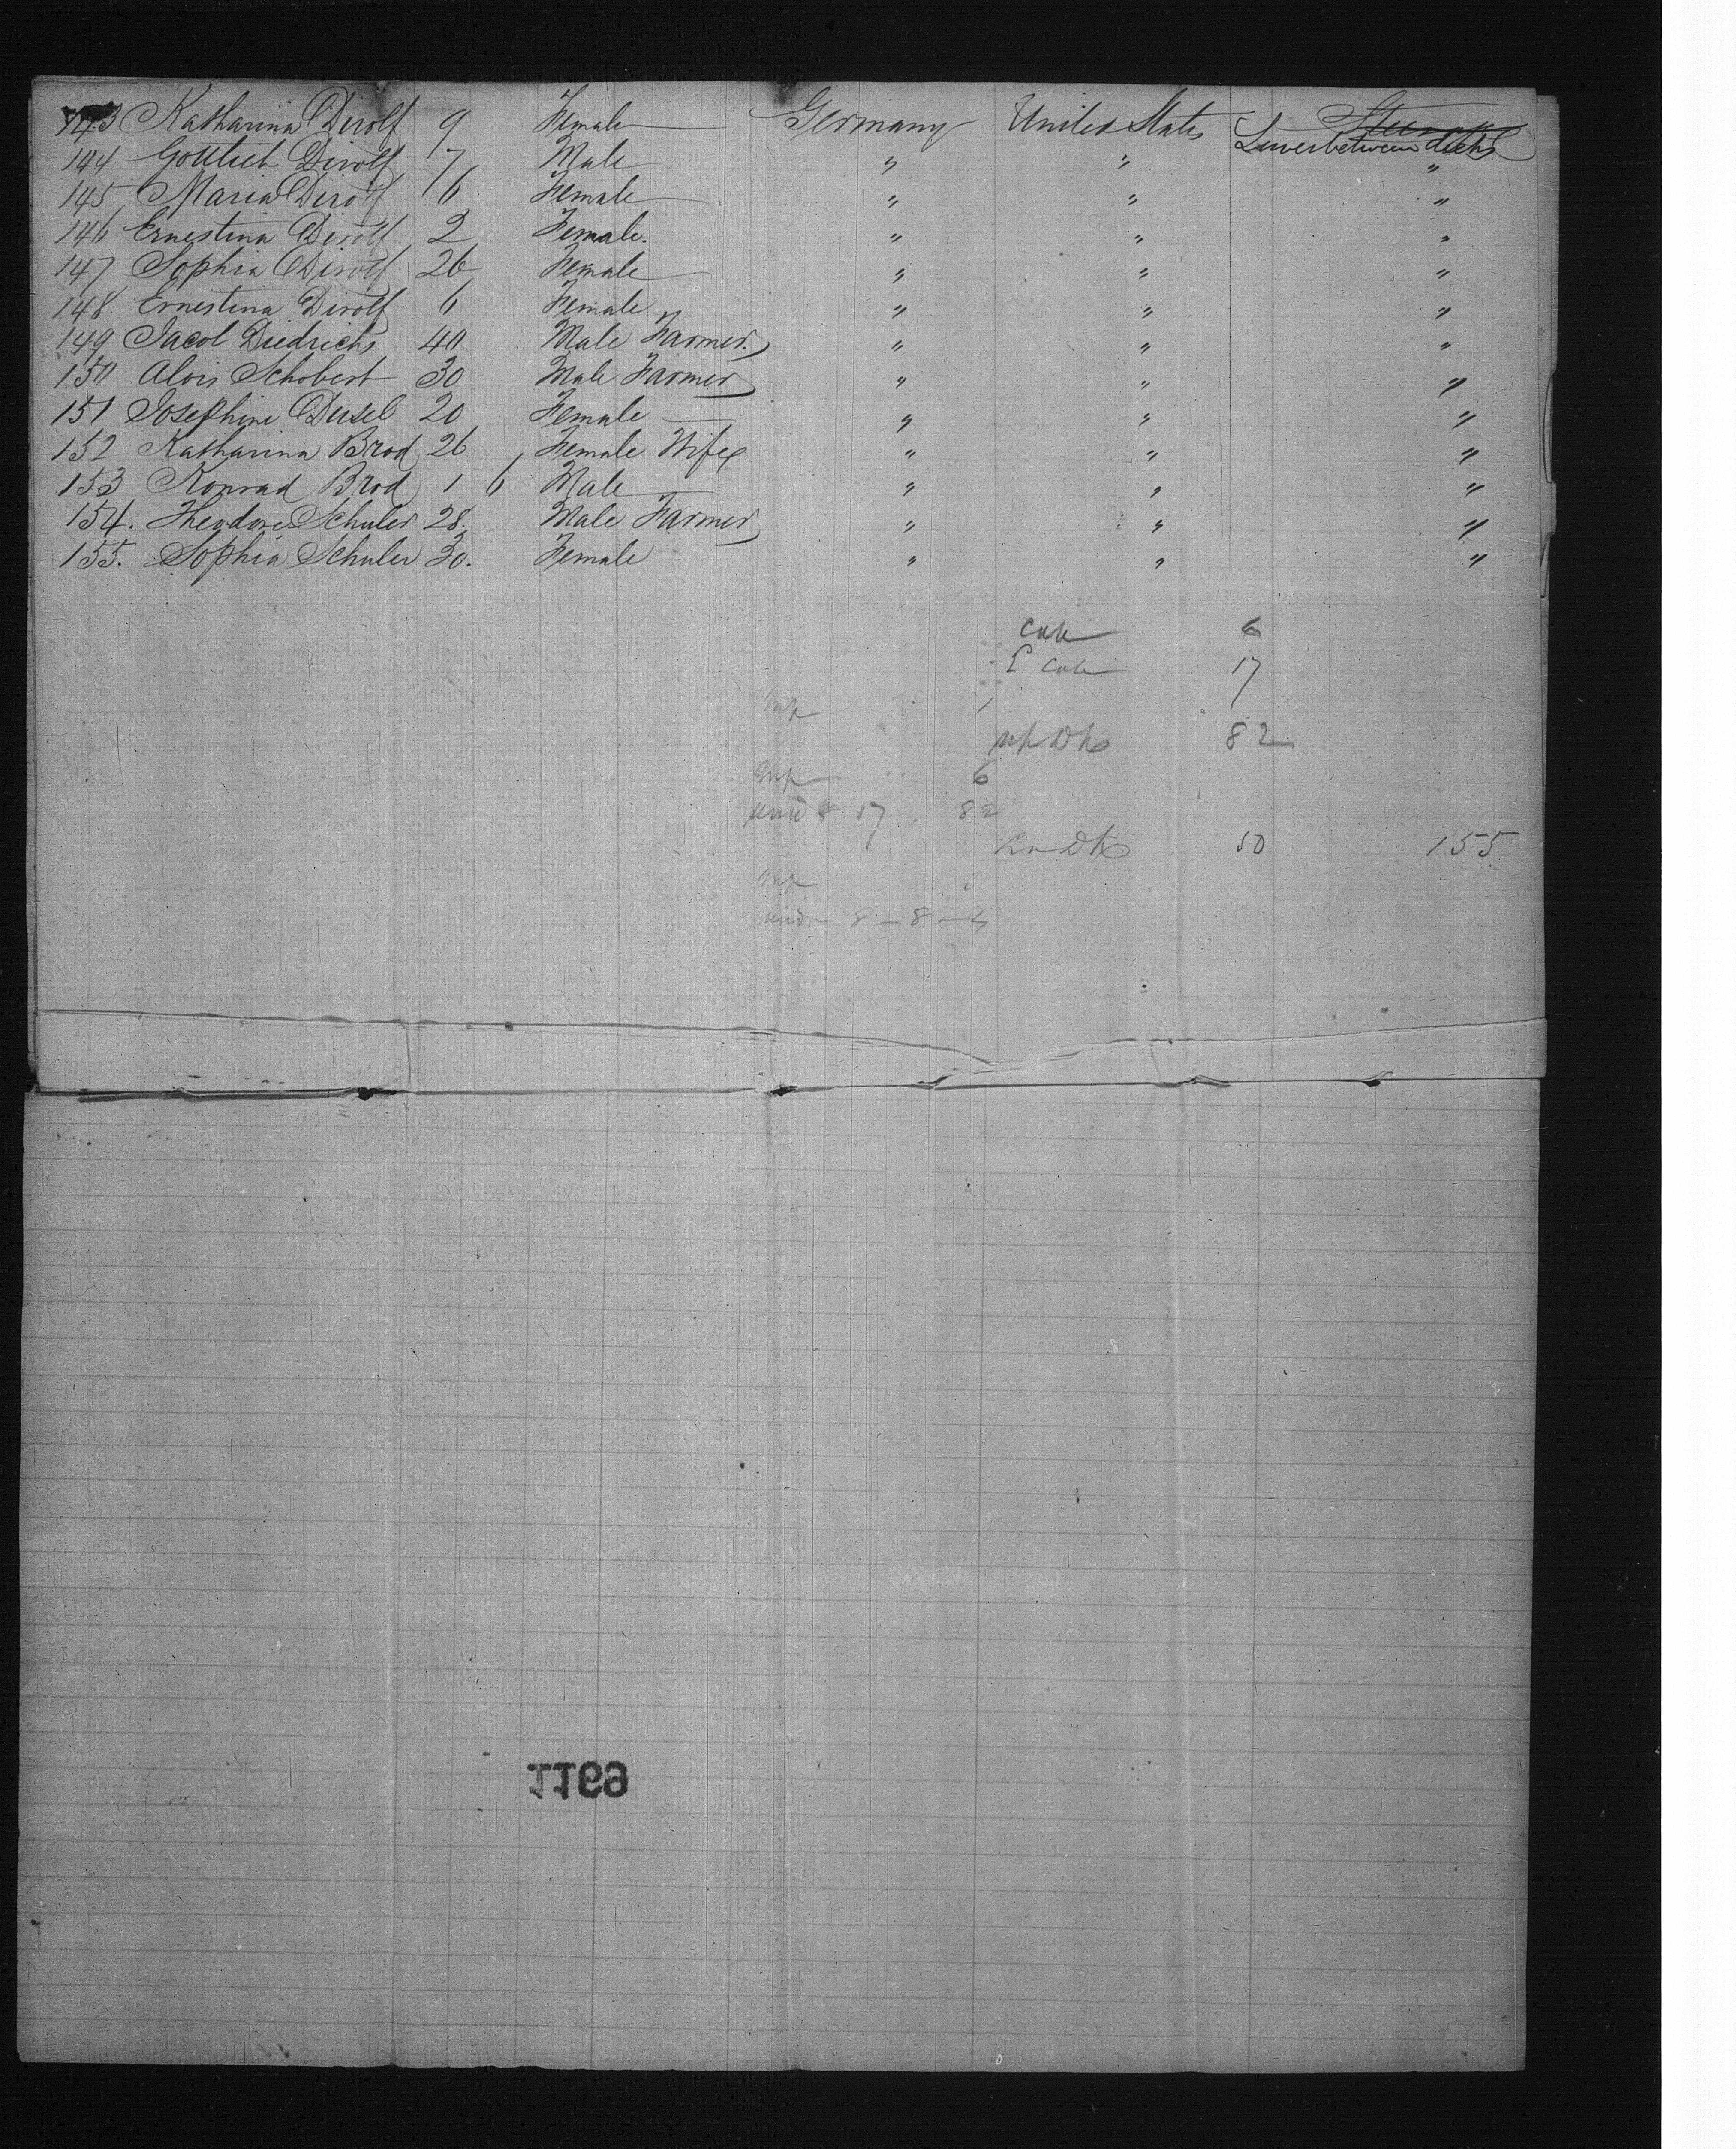 143 Katharina Dirolf 9 Female Germany United States Steerage
Lower between decks
144 Gottlieb Dirolf 7 Male " " "
145 Maria Dirolf 6 Female " " "
146 Ernestina Dirolf 2 Female. " " "
147 Sophia Dirolf 26 Female " " "
148 Ernestina Dirolf 6 Female " " "
149 Jacob Diedrichs 40 Male Farmer. " " "
150 Alois Schobert 30 Male Farmer " " "
151 Josephine Dusel 20 Female " " "
152 Katharina Brod 26 Female Wife " " "
153 Konrad Brod 1 6 Male " " "
154. Theodore Schuler 28. Male Farmer " " "
155. Sophia Schuler 30. Female " " "
Cab 6
2 Cab 17
1
up Dks 82
6
8 17 82
Lr Dk 50 155
8 - 8 -
1169